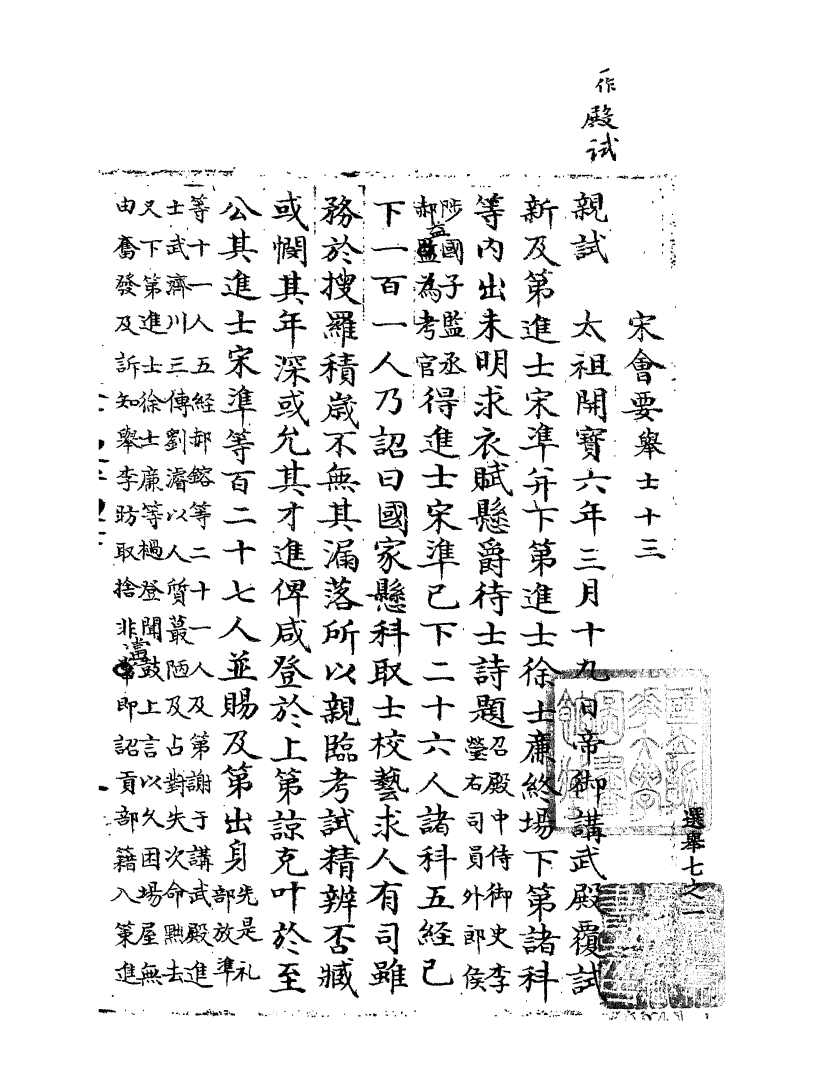 一作殿試
選舉七之一
宋會要舉士十三
親試　太祖開寶六年三月十九日帝御講武殿覆試
新及第進士宋準并下第進士徐士廉終場下第諸科
等內出未明求衣賦懸爵待士詩題召殿中侍御史李
瑩右司員外郎侯
陟國子監丞
郝益為考官得進士宋準已下二十六人諸科五經已
下一百一人乃詔曰國家懸科取士校藝求人有司雖
務於搜羅積歲不無其漏落所以親臨考試精辨否臧
或憫其年深或允其才進俾咸登於上第諒克叶於至
公其進士宋準等百二十七人並賜及第出身先是礼
部放準
等十一人五經郝鎔等二十一人及第謝于講武殿進
士武濟川三傳劉濬以人質蕞陋及占對失次命黜去
又下第進士徐士廉等撾登聞鼓上言以久困場屋無
由奮發及訴知舉李昉取捨非當即詔貢部籍入策進